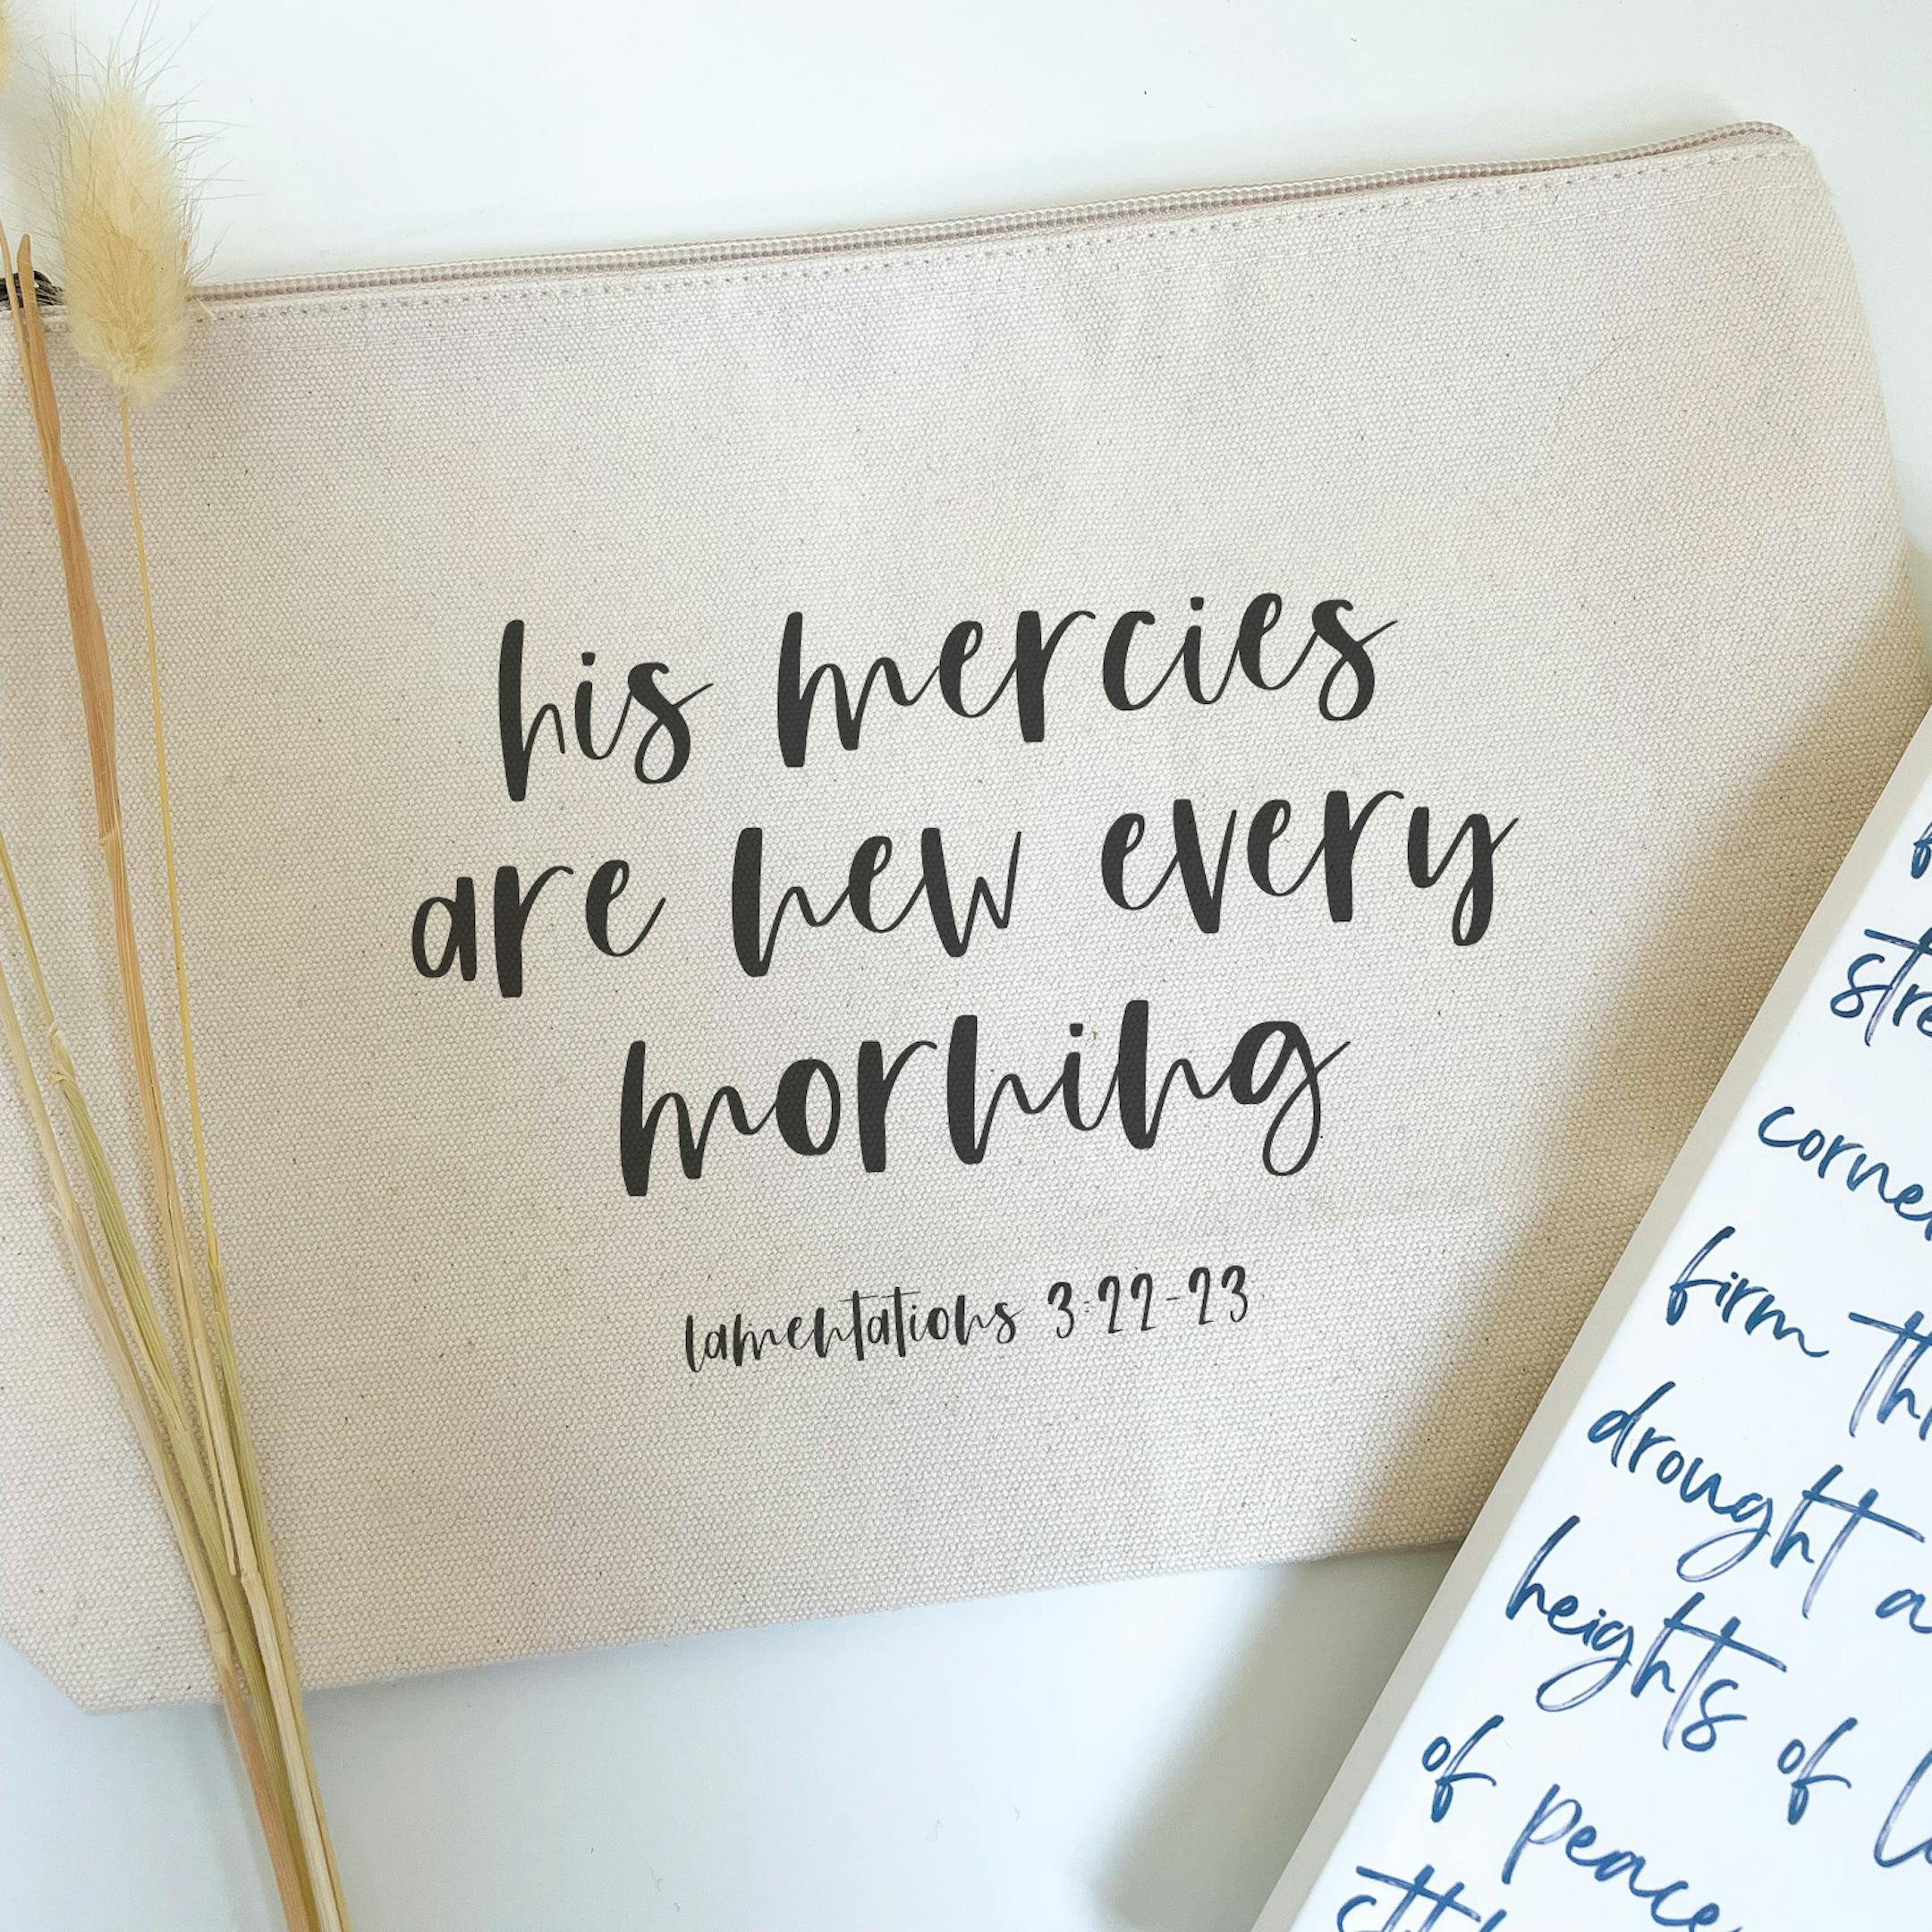 his mercies
are new every
morning
lamentations 3:22-23
corne
firm th
drought a
heights of l
of peace